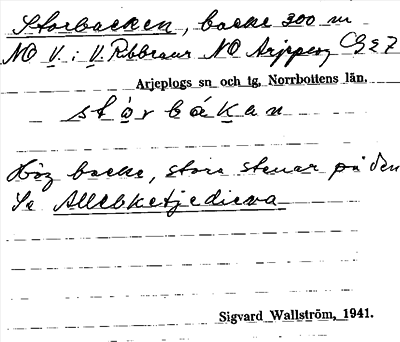 Storbacken, backe 300 m
NO V. i V. Rebraur NO Arjepeng C927
Arjeplogs sn och tg, Norrbottens län.
stórbákan
Hög backe, stora stenar på den
Se Allebketjedieva
Sigvard Wallström, 1941.